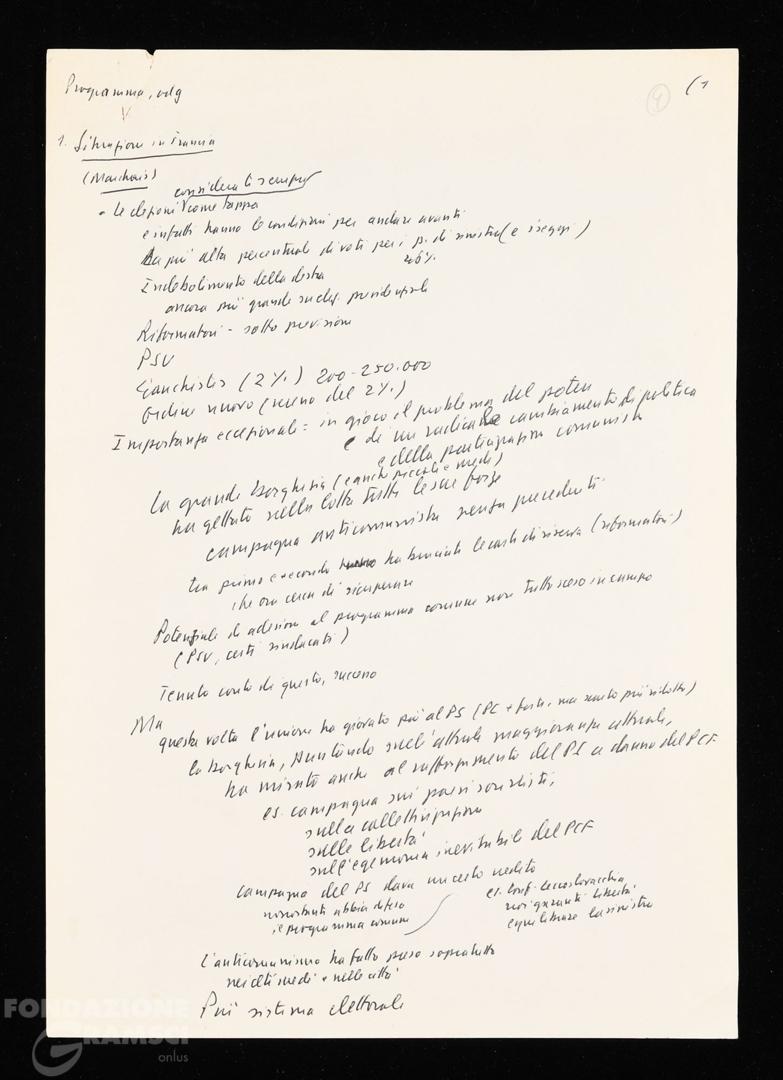 Programma, odg
(4)
(1
1. Situazione in Francia
(Marchais)
considerati sempre
- Le elezioni come tappa
e infatti hanno le condizioni per andare avanti
La più alta percentuale di voti per i p. di sinistra (e i seggi)
46%
Indebolimento della destra
ancora più grande su elez. presidenziali
Riformatori - sotto previsione
PSU
Gauchistes (2%) 200-250.000
Ordine nuovo (meno del 2%)
Importanza eccezionale = in gioco il problema del potere
e di un radicale cambiamento di politica
e della partecipazione comunista
La grande borghesia (e anche piccoli e medi)
ha gettato nella lotta tutte le sue forze
campagna anticomunista senza precedenti
tra primo e secondo ha bruciato le carte di riserva (riformatori)
che ora cerca di recuperare
Potenziale di adesione al programma comune non tutto sceso in campo
(PSU, certi sindacati)
Tenuto conto di questo, successo
Ma
questa volta l'unione ha giovato più al PS (PC + forte, ma scarto più ridotto)
la borghesia, puntando sull'attuale maggioranza elettorale,
ha mirato anche al rafforzamento del PS a danno del PCF
es. campagna sui paesi socialisti,
sulla collettivizzazione
sulle libertà
sull'egemonia inevitabile del PCF
campagna del PS dava un certo credito
nonostante abbia difeso
il programma comune
es. Conf. Cecoslovacchia
noi garanti libertà
equilibrare la sinistra
L'anticomunismo ha fatto presa soprattutto
nei ceti medi e nelle città
Più sistema elettorale
FONDAZIONE
GRAMSCI
onlus